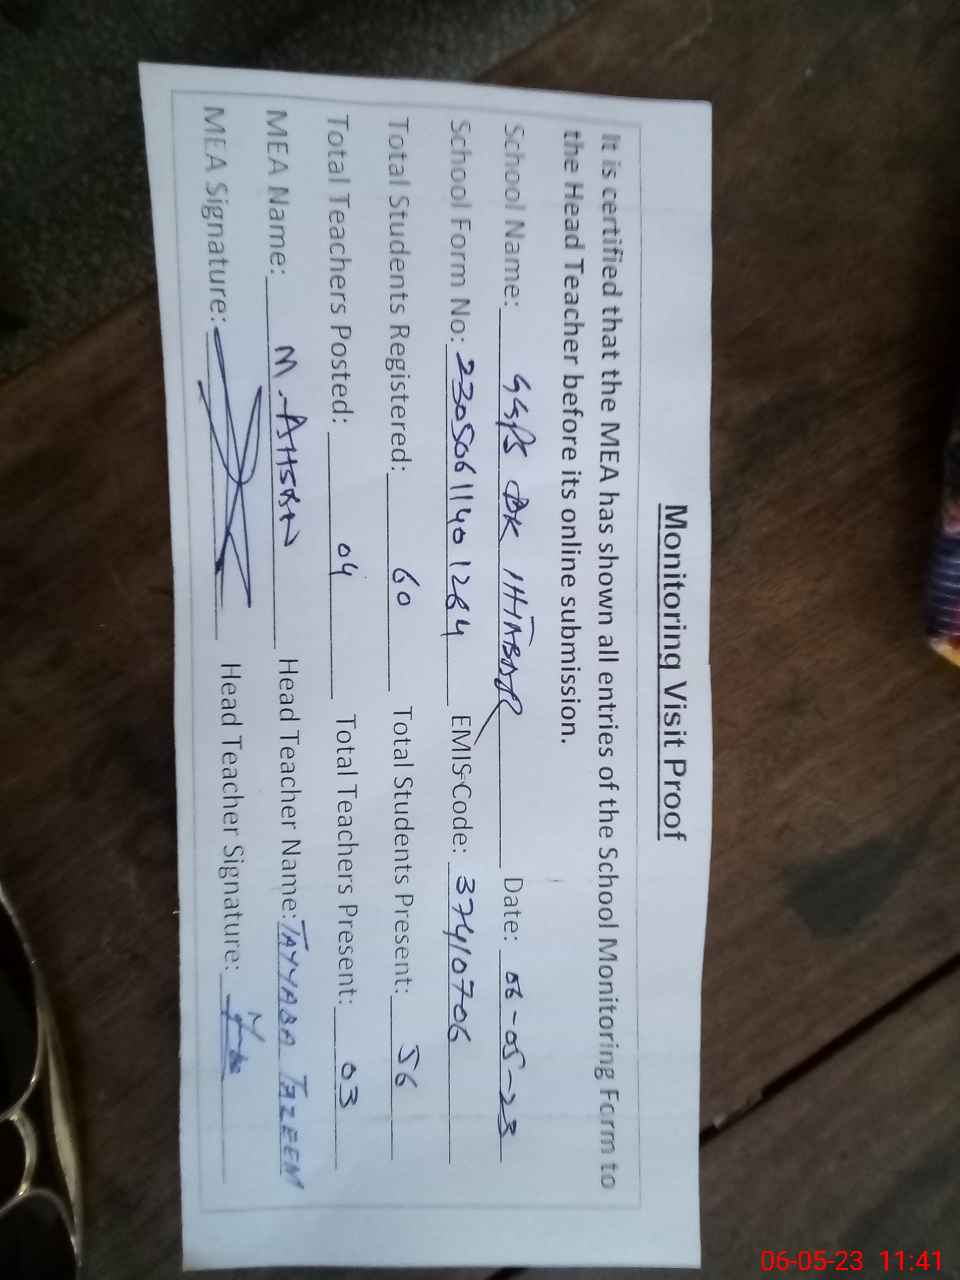 Monitoring Visit Proof
It is certified that the MEA has shown all entries of the School Monitoring Form to
the Head Teacher before its online submission.
School Name: GGPS DK Date: 06-05-23
School Form No: 2305061140 1264 EMIS Code: 37410706
Total Students Registered: 60 Total Students Present: 56
Total Teachers Posted: 04 Total Teachers Present: 03
MEA Name: M. AHSAN Head Teacher Name: TAYYABA TAZEEM
MEA Signature: Head Teacher Signature:
06-05-23 11:41